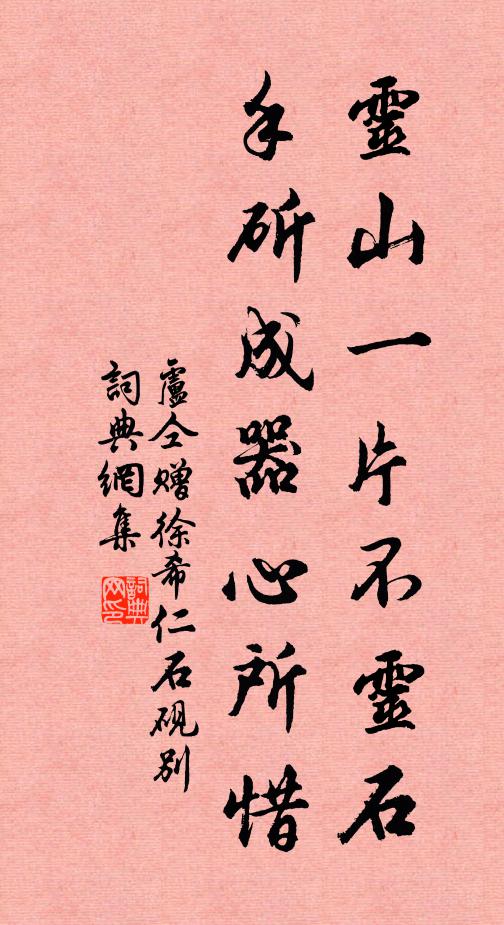 靈山一片不靈石
手斫成器心所惜
盧仝贈徐希仁石硯別
詞典網集
詞典
网印